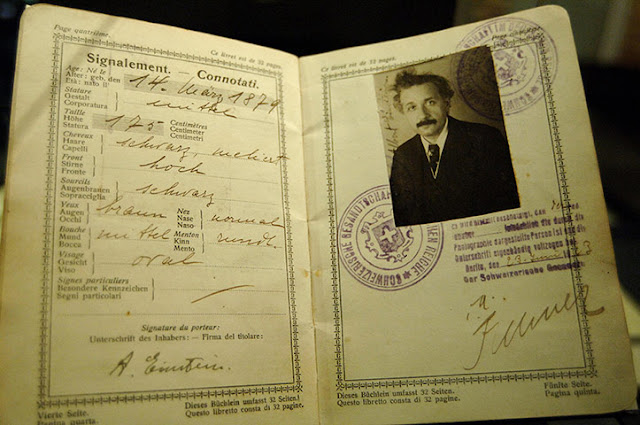 Page quatrième.
Ce livret est de 32 pages.
Signalement. — Connotati.
Age: Né le
Alter: geb. den
Età: nato il
14. März 1879
Stature
Gestalt
Corporatura
mittel
Taille
Höhe
Statura
175
Centimètres
Centimeter
Centimetri
Cheveux
Haare
Capelli
schwarz, meliert
Front
Stirne
Fronte
hoch
Sourcils
Augenbrauen
Sopracciglia
schwarz
Yeux
Augen
Occhi
braun
Nez
Nase
Naso
normal
Bouche
Mund
Bocca
mittel
Menton
Kinn
Mento
rund
Visage
Gesicht
Viso
oval
Signes particuliers
Besondere Kennzeichen
Segni particolari
Signature du porteur:
Unterschrift des Inhabers: — Firma del titolare:
A. Einstein.
Vierte Seite.
Pagina quarta.
Dieses Büchlein umfasst 32 Seiten.
Questo libretto consta di 32 pagine.
Page cinquième.
Ce livret est de 32 pages.
SCHWEIZERISCHE GESANDTSCHAFT
Es wird hiermit bescheinigt, dass
durch die
Photographie dargestellte Person ist und die
Unterschrift eigenhändig vollzogen hat.
Berlin, den
Der Schweizerische Gesandte
Dieses Büchlein umfasst 32 Seiten.
Questo libretto consta di 32 pagine.
Fünfte Seite.
Pagina quinta.